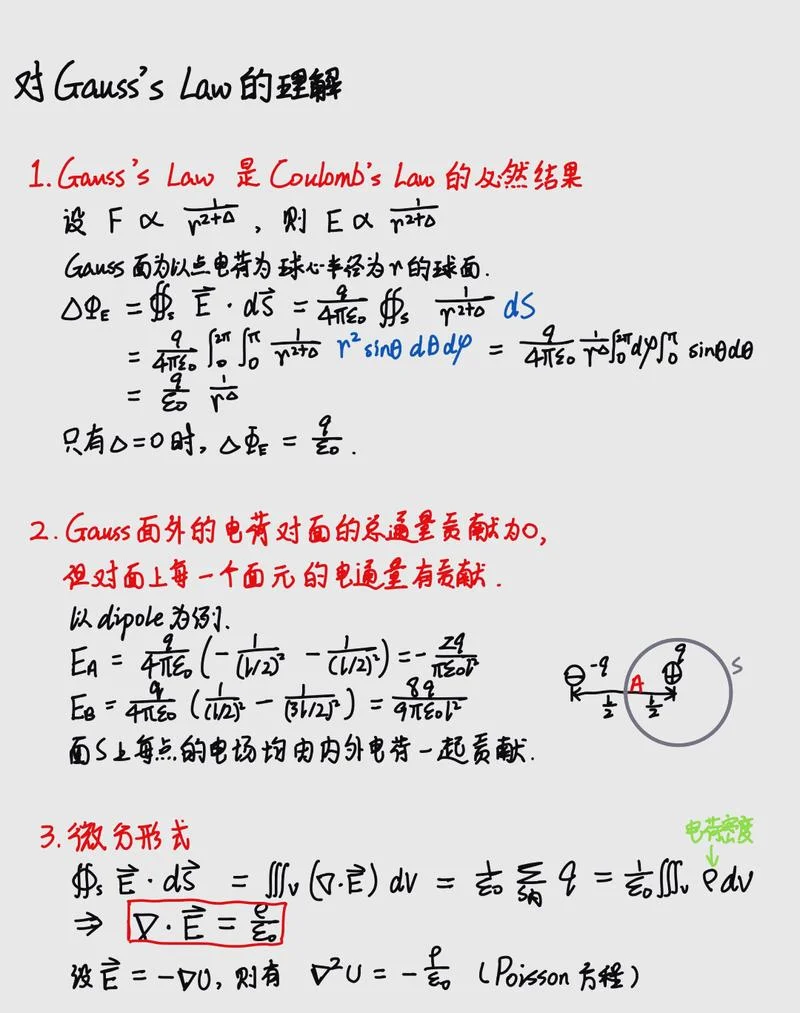 对Gauss's Law的理解
1. Gauss's Law 是Coulomb's Law的必然结果
设 F ∝ 1/r^(2+Δ) , 则 E ∝ 1/r^(2+Δ)
Gauss面为以点电荷为球心半径为r的球面.
ΔΦ_E = ∯_S E⃗ · dS⃗ = q/(4πε₀) ∯_S 1/r^(2+Δ) dS
= q/(4πε₀) ∫₀^(2π) ∫₀^π 1/r^(2+Δ) r² sinθ dθdφ = q/(4πε₀) 1/r^Δ ∫₀^(2π) dφ ∫₀^π sinθdθ
= q/ε₀ 1/r^Δ
只有Δ=0时, ΔΦ_E = q/ε₀ .
2. Gauss面外的电荷对面的总通量贡献为0,
但对面上每一个面元的电通量有贡献.
以dipole为例.
E_A = q/(4πε₀) (-1/(l/2)² - 1/(l/2)²) = -2q/(πε₀l²)
E_B = q/(4πε₀) (1/(l/2)² - 1/(3l/2)²) = 8q/(9πε₀l²)
⊖ -q
A
q
⊕
S
l/2
l/2
面S上每点的电场均由内外电荷一起贡献.
3. 微分形式
电荷密度
↓
∯_S E⃗ · dS⃗ = ∭_V (∇·E⃗) dV = 1/ε₀ Σ_(S内) q = 1/ε₀ ∭_V ρdV
⇒ ∇·E⃗ = ρ/ε₀
设E⃗ = -∇U, 则有 ∇²U = -ρ/ε₀ (Poisson方程)